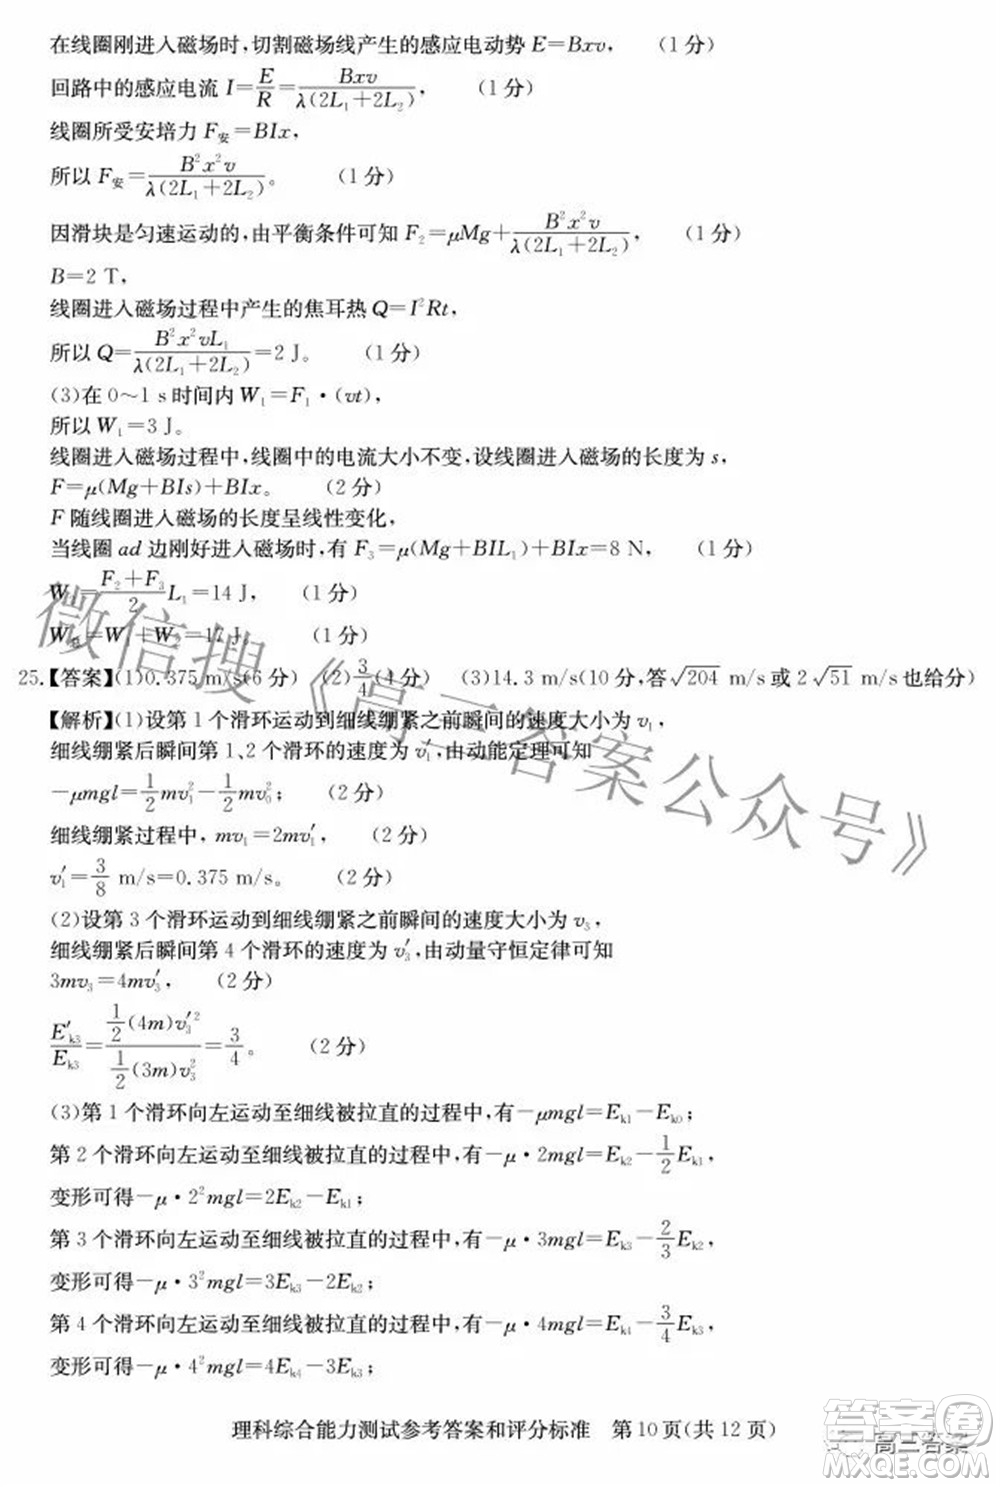 在线圈刚进入磁场时,切割磁场线产生的感应电动势 E=Bxv, (1分)
回路中的感应电流 I=E/R=Bxv/λ(2L₁+2L₂), (1分)
线圈所受安培力 F安=BIx,
所以 F安=B²x²v/λ(2L₁+2L₂)。 (1分)
因滑块是匀速运动的,由平衡条件可知 F₂=μMg+B²x²v/λ(2L₁+2L₂), (1分)
B=2 T,
线圈进入磁场过程中产生的焦耳热 Q=I²Rt,
所以 Q=B²x²vL₁/λ(2L₁+2L₂)=2 J。 (1分)
(3)在 0~1 s 时间内 W₁=F₁·(vt),
所以 W₁=3 J。
线圈进入磁场过程中,线圈中的电流大小不变,设线圈进入磁场的长度为 s,
F=μ(Mg+BIs)+BIx。 (2分)
F 随线圈进入磁场的长度呈线性变化,
当线圈 ad 边刚好进入磁场时,有 F₃=μ(Mg+BIL₁)+BIx=8 N, (1分)
(F₂+F₃)/2 L₁=14 J, (1分)
=W₁+W₂=17 J。 (1分)
25.【答案】(1)0.375 m/s(6分) (2)3/4(4分) (3)14.3 m/s(10分,答√204 m/s 或 2√51 m/s 也给分)
【解析】(1)设第 1 个滑环运动到细线绷紧之前瞬间的速度大小为 v₁,
细线绷紧后瞬间第 1、2 个滑环的速度为 v₁′,由动能定理可知
-μmgl=1/2mv₁²-1/2mv₀²; (2分)
细线绷紧过程中,mv₁=2mv₁′, (2分)
v₁′=3/8 m/s=0.375 m/s。 (2分)
(2)设第 3 个滑环运动到细线绷紧之前瞬间的速度大小为 v₃,
细线绷紧后瞬间第 4 个滑环的速度为 v₃′,由动量守恒定律可知
3mv₃=4mv₃′, (2分)
E′k3/Ek3=1/2(4m)v₃′²/1/2(3m)v₃²=3/4。 (2分)
(3)第 1 个滑环向左运动至细线被拉直的过程中,有-μmgl=Ek1-Ek0;
第 2 个滑环向左运动至细线被拉直的过程中,有-μ·2mgl=Ek2-1/2Ek1,
变形可得-μ·2²mgl=2Ek2-Ek1;
第 3 个滑环向左运动至细线被拉直的过程中,有-μ·3mgl=Ek3-2/3Ek2,
变形可得-μ·3²mgl=3Ek3-2Ek2;
第 4 个滑环向左运动至细线被拉直的过程中,有-μ·4mgl=Ek4-3/4Ek3,
变形可得-μ·4²mgl=4Ek4-3Ek3;
理科综合能力测试参考答案和评分标准 第10页(共12页)
微信搜《高三答案公众号》
高三答案
MXQE.COM